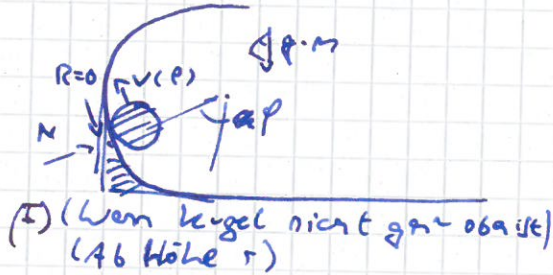 g·m
R=0 v(φ)
N φ
(I) (Wenn Kugel nicht ganz oben ist)
(Ab Höhe r)